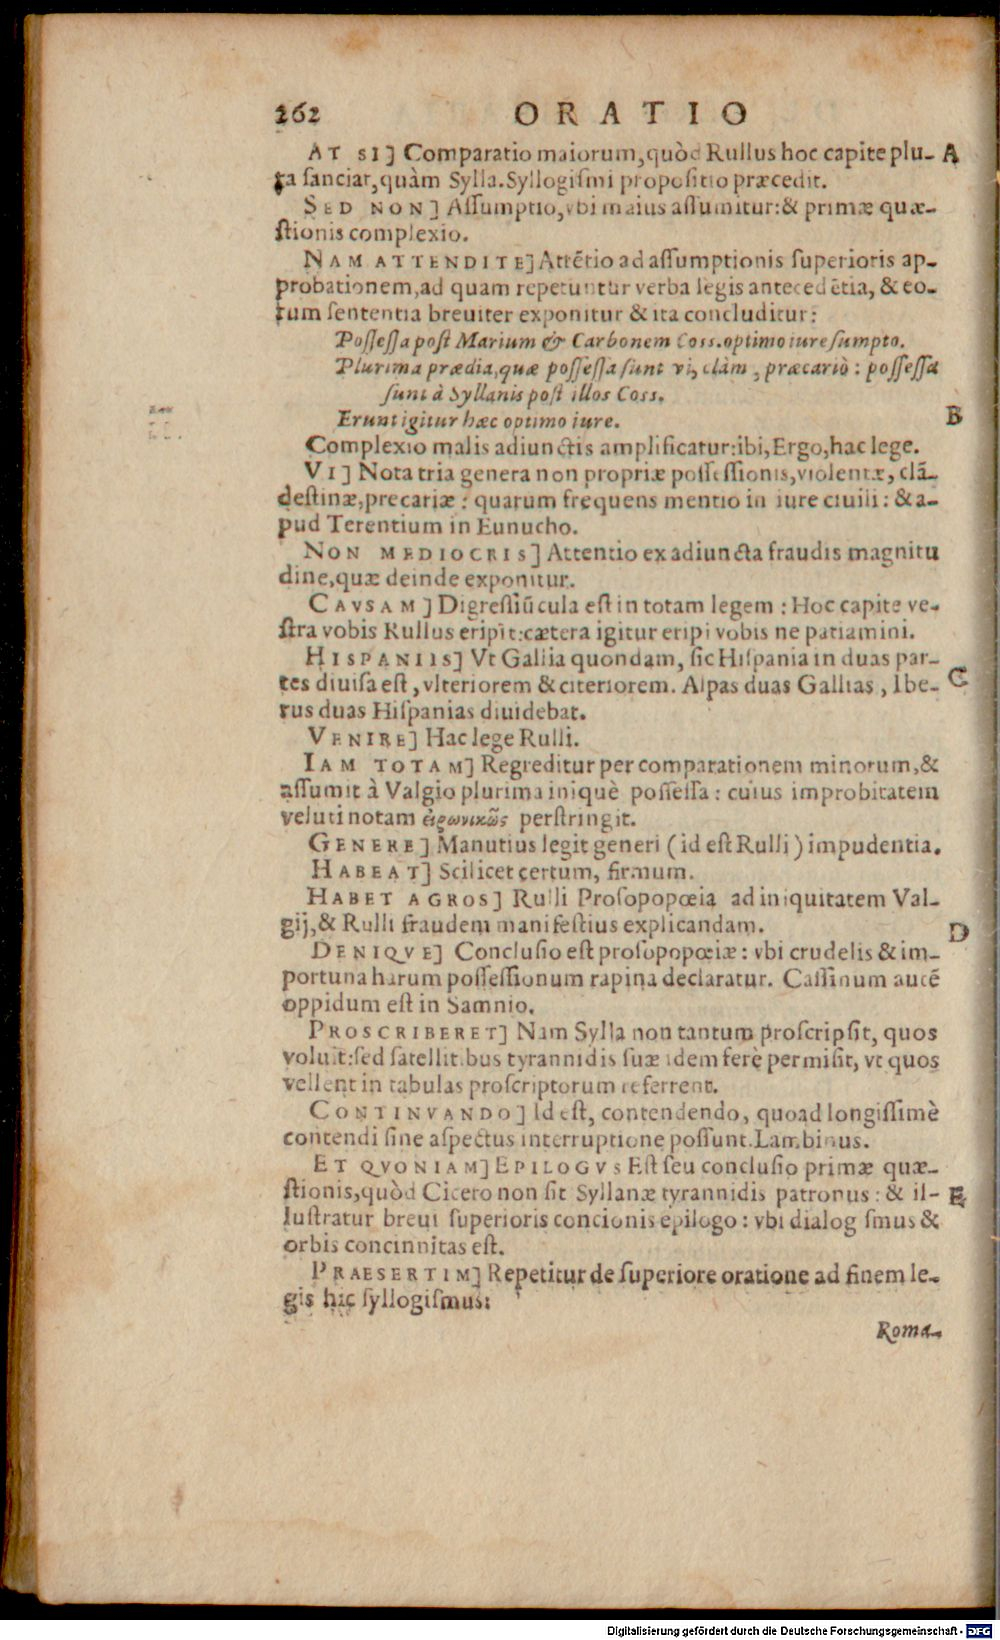 262 ORATIO
AT SI] Comparatio maiorum, quòd Rullus hoc capite plu- A
ra sanciat, quàm Sylla. Syllogismi propositio præcedit.
SED NON] Assumptio, vbi maius assumitur: & primæ quæ-
stionis complexio.
NAM ATTENDITE] Attẽtio ad assumptionis superioris ap-
probationem, ad quam repetuntur verba legis antecedẽtia, & eo-
rum sententia breuiter exponitur & ita concluditur:
Possessa post Marium & Carbonem Coss. optimo iure sumpto.
Plurima prædia, quæ possessa sunt vi, clàm, præcariò: possessa
sunt à Syllanis post illos Coss.
Erunt igitur hæc optimo iure. B
Complexio malis adiunctis amplificatur: ibi, Ergo, hac lege.
VI] Nota tria genera non propriæ possessionis, violentæ, clã-
destinæ, precariæ: quarum frequens mentio in iure ciuili: & a-
pud Terentium in Eunucho.
NON MEDIOCRIS] Attentio ex adiuncta fraudis magnitu
dine, quæ deinde exponitur.
CAVSAM] Digressiũcula est in totam legem: Hoc capite ve-
stra vobis Rullus eripit: cætera igitur eripi vobis ne patiamini.
HISPANIIS] Vt Gallia quondam, sic Hispania in duas par-
tes diuisa est, vlteriorem & citeriorem. Alpas duas Gallias, Ibe- C
rus duas Hispanias diuidebat.
VENIRE] Hac lege Rulli.
IAM TOTAM] Regreditur per comparationem minorum, &
assumit à Valgio plurima iniquè possessa: cuius improbitatem
veluti notam εἰρωνικῶς perstringit.
GENERE] Manutius legit generi (id est Rulli) impudentia.
HABEAT] Scilicet certum, firmum.
HABET AGROS] Rulli Prosopopœia ad iniquitatem Val-
gij, & Rulli fraudem manifestius explicandam. D
DENIQVE] Conclusio est prosopopœiæ: vbi crudelis & im-
portuna harum possessionum rapina declaratur. Cassinum autẽ
oppidum est in Samnio.
PROSCRIBERET] Nam Sylla non tantum proscripsit, quos
voluit: sed satellitibus tyrannidis suæ idem ferè permisit, vt quos
vellent in tabulas proscriptorum referrent.
CONTINVANDO] Id est, contendendo, quoad longissimè
contendi sine aspectus interruptione possunt. Lambinus.
ET QVONIAM] EPILOGVS Est seu conclusio primæ quæ-
stionis, quòd Cicero non sit Syllanæ tyrannidis patronus: & il- E
lustratur breui superioris concionis epilogo: vbi dialogismus &
orbis concinnitas est.
PRAESERTIM] Repetitur de superiore oratione ad finem le-
gis hic syllogismus:
Roma-
Digitalisierung gefördert durch die Deutsche Forschungsgemeinschaft - DFG